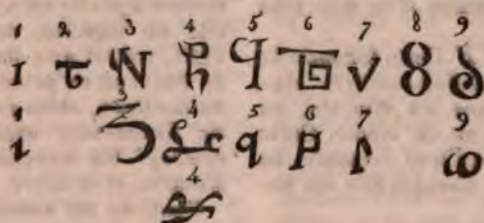 1 2 3 4 5 6 7 8 9
I τ q V 8
1 3 4 5 6 7 9
ι q P ω
4